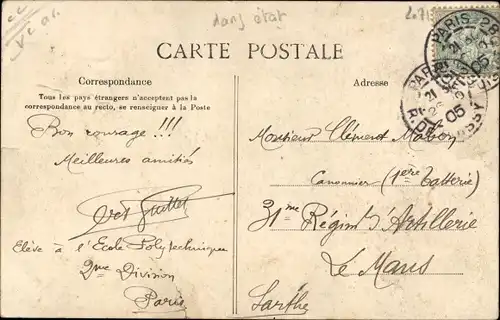 dans état
CARTE POSTALE
Correspondance
Tous les pays étrangers n'acceptent pas la
correspondance au recto, se renseigner à la Poste
Bon courage!!!
Meilleures amitiés
Guillet
Elève à l'Ecole Polytechnique
2me Division
Paris
Adresse
Monsieur Clément
Canonnier (1ere batterie)
31me Régim't d'Artillerie
Le Mans
Sarthe
PARIS 26
05
PARIS
21
05